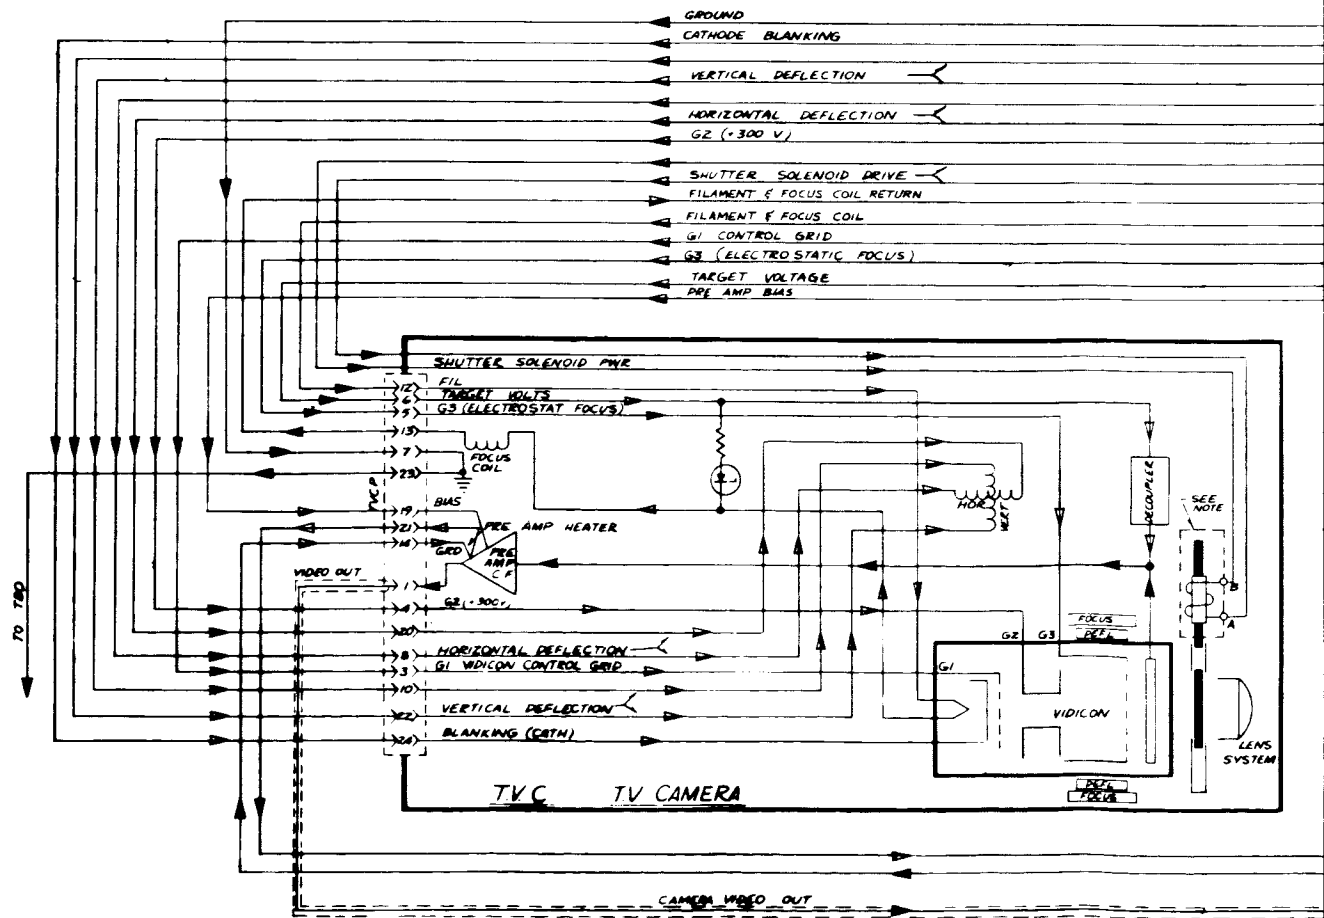 GROUND
CATHODE BLANKING
VERTICAL DEFLECTION
HORIZONTAL DEFLECTION
G2 (+300 V)
SHUTTER SOLENOID DRIVE
FILAMENT & FOCUS COIL RETURN
FILAMENT & FOCUS COIL
G1 CONTROL GRID
G3 (ELECTROSTATIC FOCUS)
TARGET VOLTAGE
PRE AMP BIAS
SHUTTER SOLENOID PWR
12 FIL
6 TARGET VOLTS
5 G3 (ELECTROSTAT FOCUS)
13
7
FOCUS
COIL
23
TVCP
19 BIAS
21 PRE AMP HEATER
14 GRD
PRE
AMP
C F
VIDEO OUT
1
4 G2 (+300V)
20
8 HORIZONTAL DEFLECTION
3 G1 VIDICON CONTROL GRID
10
22 VERTICAL DEFLECTION
24 BLANKING (CATH)
TO TBD
HOR
VERT
DECOUPLER
SEE
NOTE
B
A
FOCUS
DEFL
G2 G3
G1
VIDICON
LENS
SYSTEM
DEFL
FOCUS
TVC TV CAMERA
CAMERA VIDEO OUT